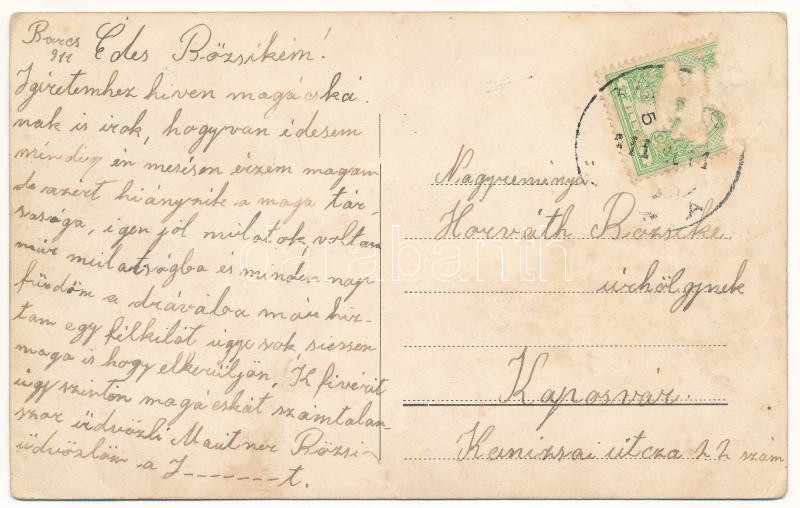 Barcs
911
Édes Bözsikém!
Igéretemhez hiven magácská-
nak is irok, hogyvan édesem
mindig én mesésen érzem magam
de azért hiányzik a maga tár-
sasága, igen jól mulatok, voltam
már mulatságba és minden nap
fürdöm a drávába már hiz-
tam egy félkilót ugye sok, siessen
maga is hogy elkerüljön, K fivérit
úgyszintén magácskát számtalan-
szor üdvözli Mautner Bözsi
üdvözlöm a J_______t.
Nagyreményü
Horváth Bozsike
úrhölgynek
Kaposvár
Kanizsai útcza 22 szám
darabanth